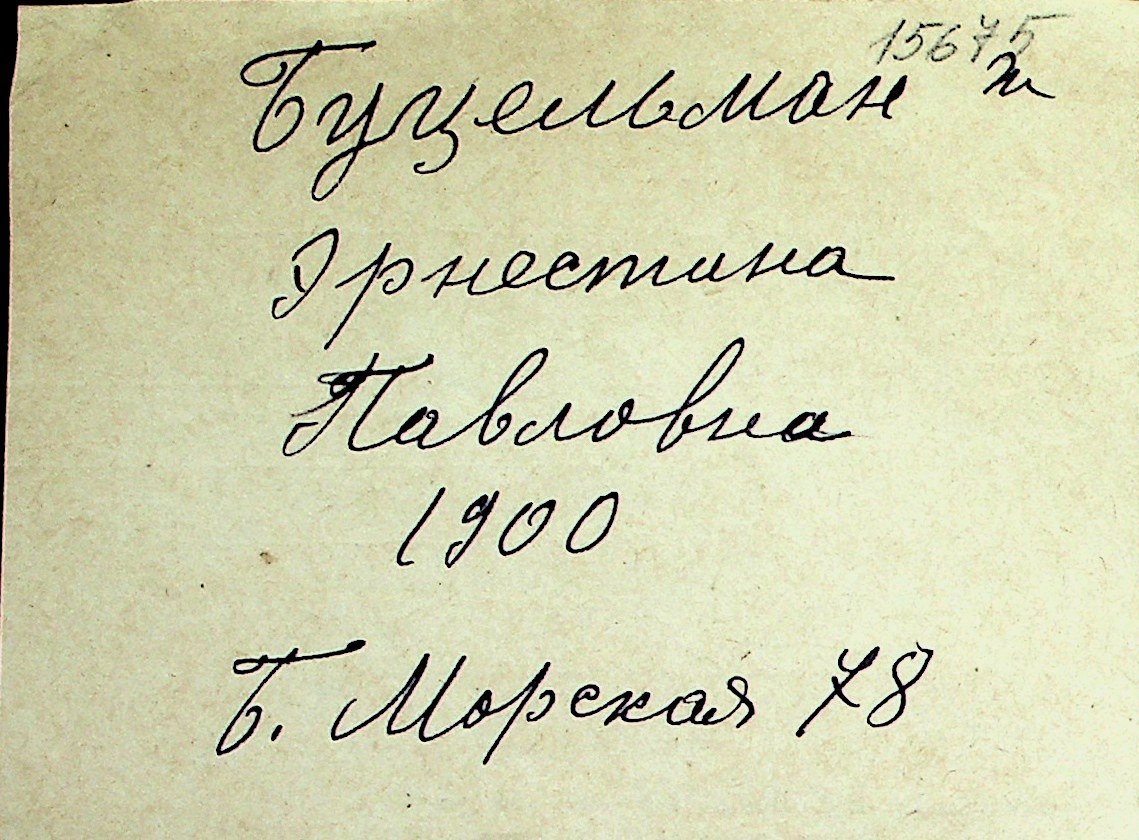 15675
Буцельман ж
Эрнестина
Павловна
1900
Б. Морская 78